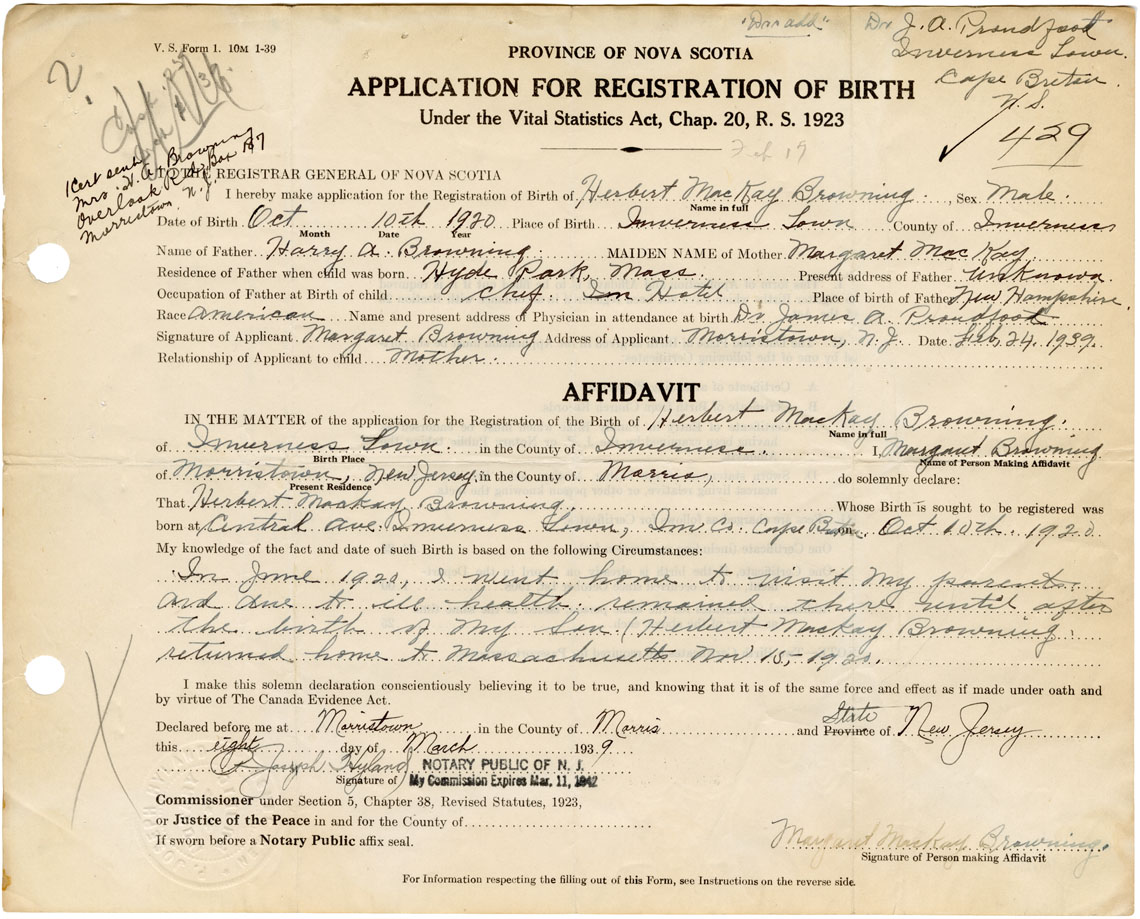 V. S. Form 1. 10M 1-39
Dr. J. A. Proudfoot
Inverness Town.
Cape Breton
N. S.
429
Feb 17
?
1 Cert sent
Mrs. H. A. Browning
Overlook Rd, Box 187
Morristown, N. J.
PROVINCE OF NOVA SCOTIA
APPLICATION FOR REGISTRATION OF BIRTH
Under the Vital Statistics Act, Chap. 20, R. S. 1923
TO THE REGISTRAR GENERAL OF NOVA SCOTIA
I hereby make application for the Registration of Birth of Herbert MacKay Browning, Sex Male.
Name in full
Date of Birth Oct 10th 1920 Place of Birth Inverness Town County of Inverness
Month Date Year
Name of Father Harry A. Browning. MAIDEN NAME of Mother Margaret MacKay
Residence of Father when child was born Hyde Park, Mass. Present address of Father unknown
Occupation of Father at Birth of child chef. In Hotel Place of birth of Father New Hampshire.
Race American Name and present address of Physician in attendance at birth Dr. James A. Proudfoot
Signature of Applicant Margaret Browning Address of Applicant Morristown, N. J. Date Feb. 24. 1939.
Relationship of Applicant to child Mother.
AFFIDAVIT
IN THE MATTER of the application for the Registration of the Birth of Herbert MacKay Browning.
Name in full
of Inverness Town. in the County of Inverness. I, Margaret Browning
Birth Place Name of Person Making Affidavit
of Morristown, New Jersey, in the County of Morris, do solemnly declare:
Present Residence
That Herbert Mackay Browning. Whose Birth is sought to be registered was
born at Central Ave. Inverness Town, Inv. Co. Cape Breton on Oct 10th. 1920.
My knowledge of the fact and date of such Birth is based on the following Circumstances:
In June 1920, I went home to visit my parents.
and due to ill health remained there until after
the birth of my Son (Herbert Mackay Browning.
returned home to Massachusetts Nov 15, 1920.
I make this solemn declaration conscientiously believing it to be true, and knowing that it is of the same force and effect as if made under oath and
by virtue of The Canada Evidence Act.
State
Declared before me at Morristown in the County of Morris and Province of New Jersey
this eight day of March 1939
Joseph Hyland NOTARY PUBLIC OF N. J.
Signature of My Commission Expires Mar. 11, 1942
Commissioner under Section 5, Chapter 38, Revised Statutes, 1923,
or Justice of the Peace in and for the County of
If sworn before a Notary Public affix seal.
Margaret Mackay Browning.
Signature of Person making Affidavit
For Information respecting the filling out of this Form, see Instructions on the reverse side.